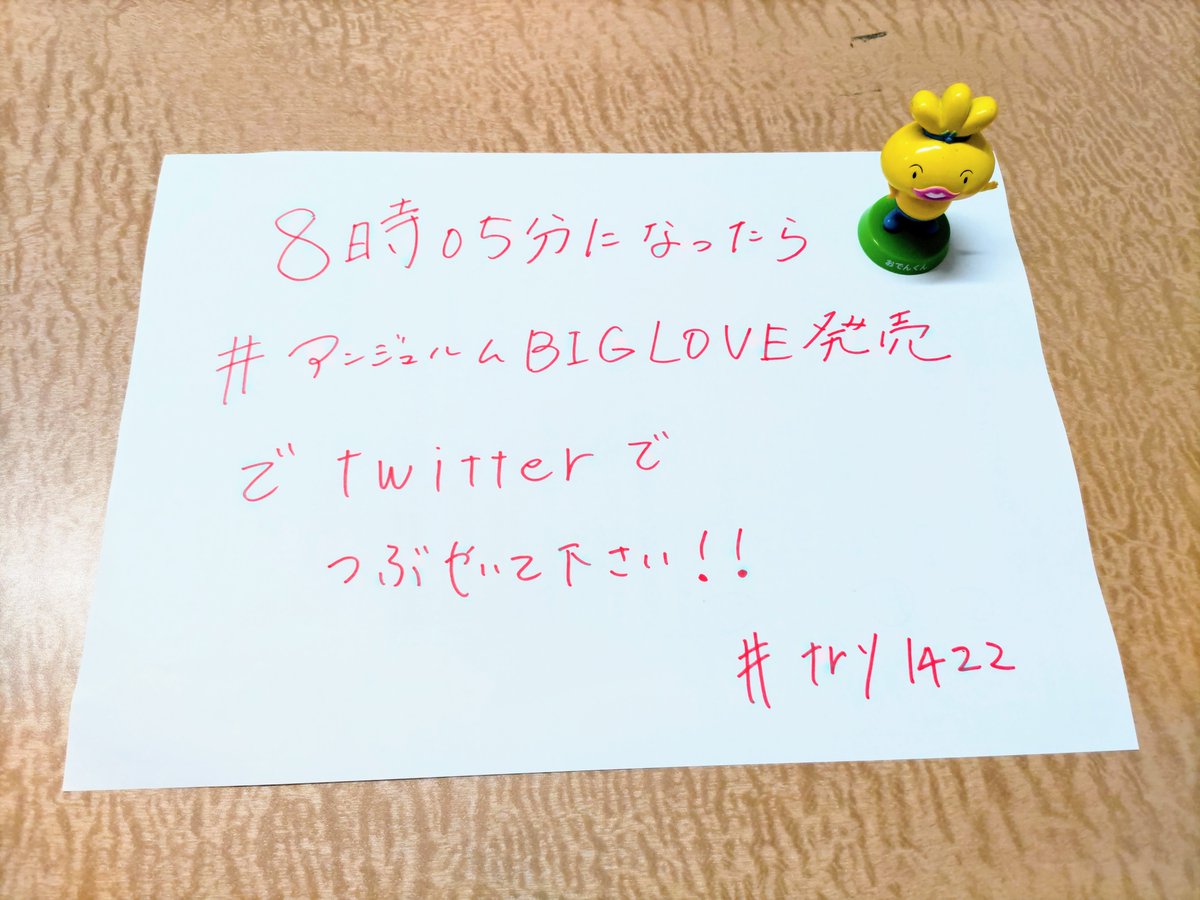 8時05分になったら
#アンジュルムBIGLOVE発売
でtwitterで
つぶやいて下さい!!
#try1422
おでんくん